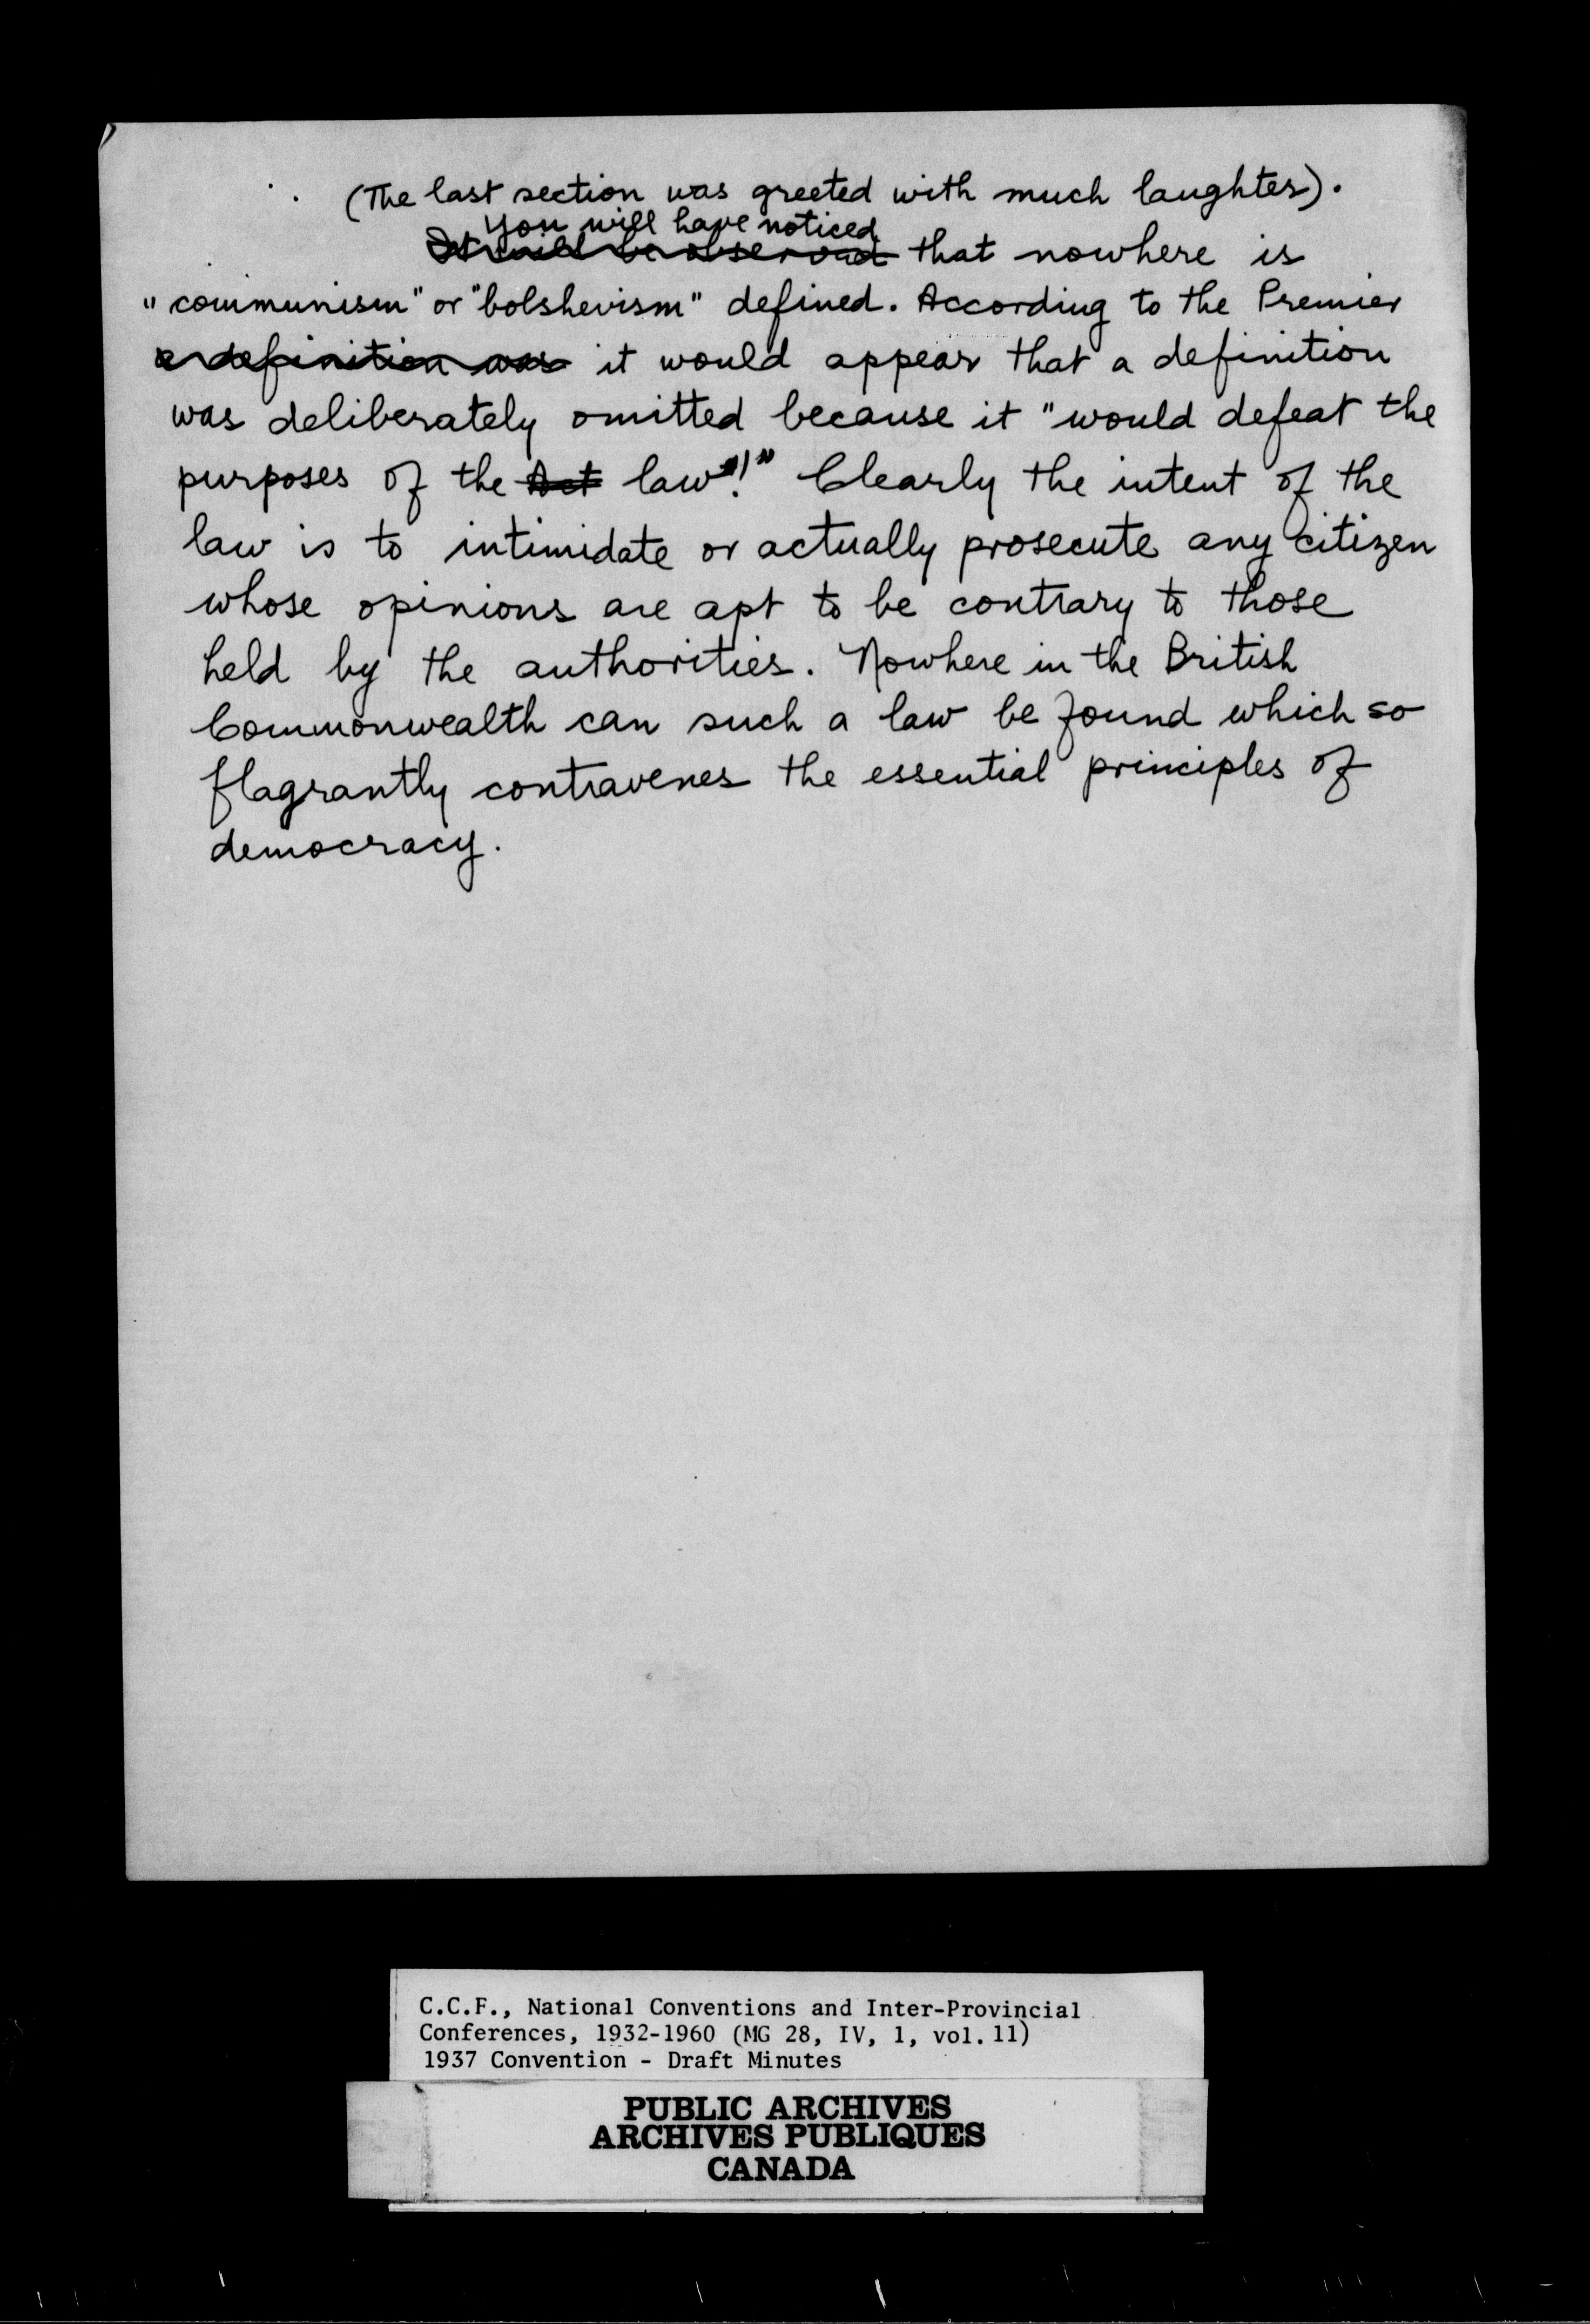 (The last section was greeted with much laughter).
You will have noticed
It will be observed that nowhere is
"communism" or "bolshevism" defined. According to the Premier
a definition was it would appear that a definition
was deliberately omitted because it "would defeat the
purposes of the Act law"!" Clearly the intent of the
law is to intimidate or actually prosecute any citizen
whose opinions are apt to be contrary to those
held by the authorities. Nowhere in the British
Commonwealth can such a law be found which so
flagrantly contravenes the essential principles of
democracy.
C.C.F., National Conventions and Inter-Provincial
Conferences, 1932-1960 (MG 28, IV, 1, vol. 11)
1937 Convention - Draft Minutes
PUBLIC ARCHIVES
ARCHIVES PUBLIQUES
CANADA